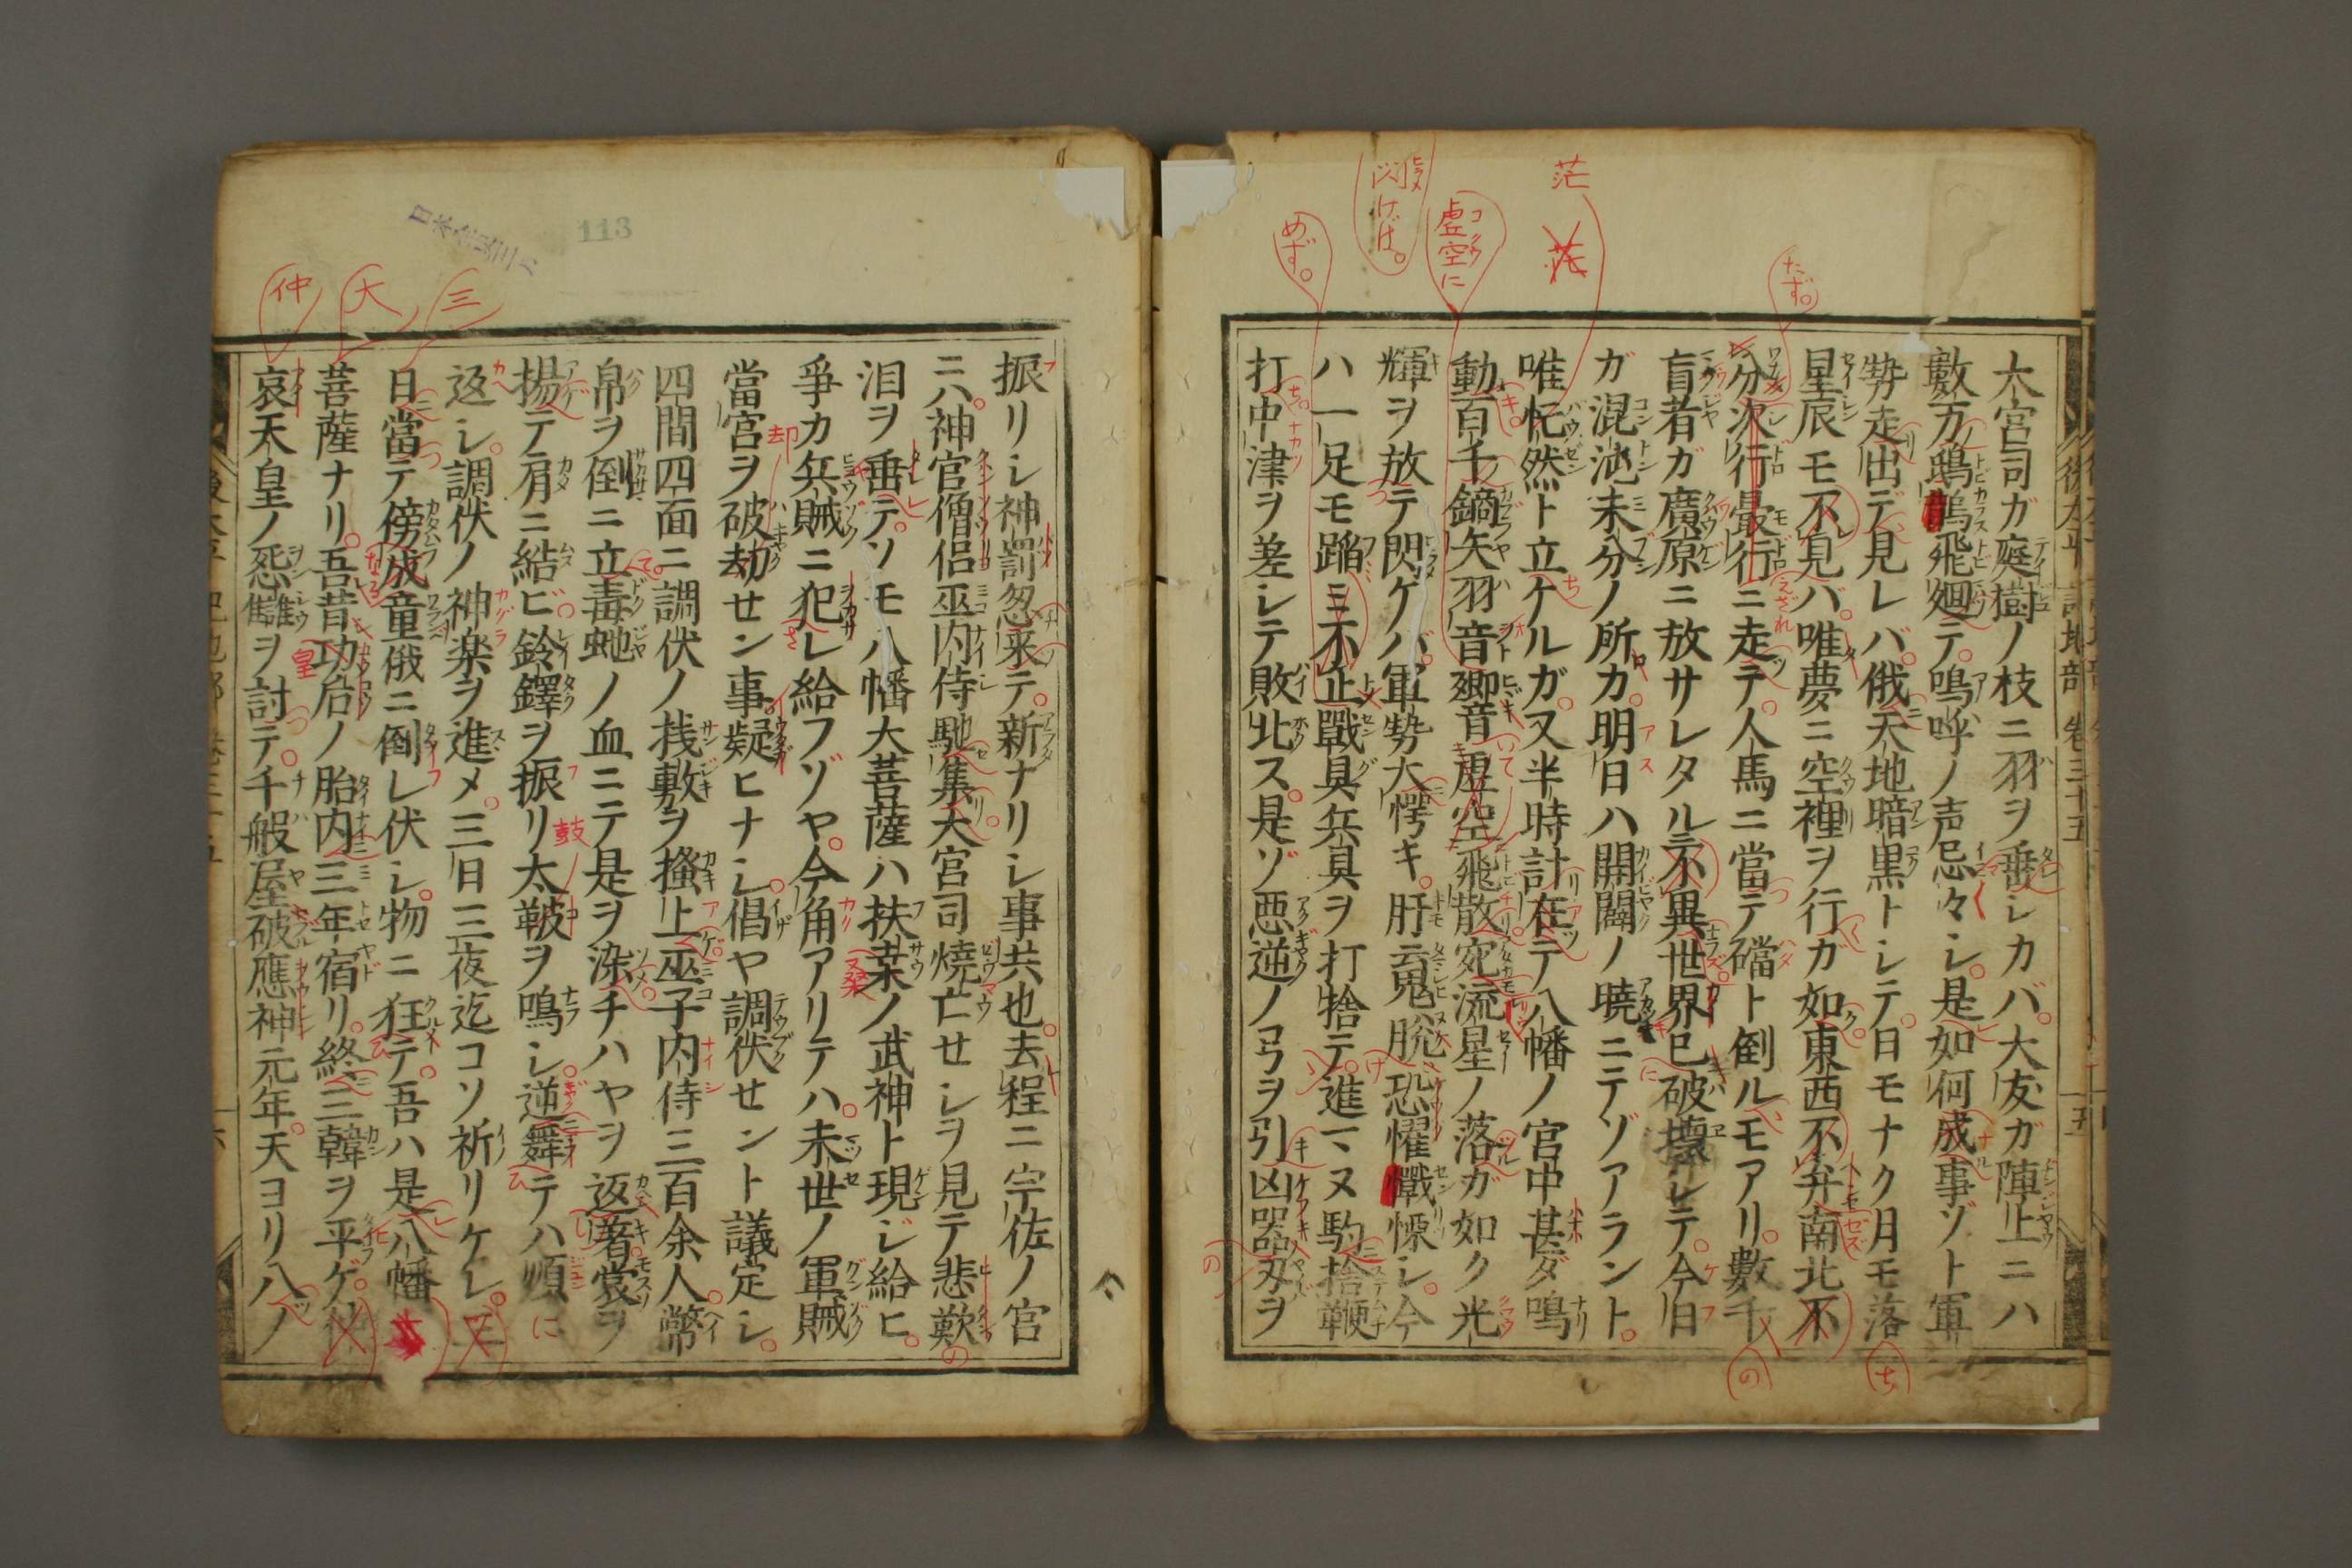 大宮司ガ庭樹ノ枝ニ羽ヲ垂レカバ大友ガ陣上ニハ
數万ノ鵄烏飛廻テ鳴呼ノ声忌々シ是如何成事ゾト軍
勢走出デ見レバ俄天地暗黒トシテ日モナク月モ落
星辰モ不見バ唯夢ニ空裡ヲ行ガ如東西不弁南北不
分次行最行ニ走テ人馬ニ當テ礑ト倒ルモアリ數千
盲者ガ廣原ニ放サレタルニ不異世界已破壞シテ今日
ガ混沌未分ノ所カ明日ハ開闢ノ曉ニテゾアラント
唯忙然ト立ケルガ又半時計在テ八幡ノ宮中甚ダ鳴
動百千鏑矢羽音郷音虚空飛散宛流星ノ落ガ如ク光
輝ヲ放テ閃ケバ軍勢大愕キ肝云鬼脱恐懼戰慄シ今
ハ一足モ蹈ミ不止戰具兵具ヲ打捨テ進マヌ駒捨鞭
打中津ヲ差シテ敗北ス是ゾ悪逆ノ弓ヲ引凶器刃ヲ
後太平記地部 卷三十五
十五
茫
茫
たず。
虚空に
コクウ
閃けば。
めず。
振リシ神罰忽来テ新ナリシ事共也去程ニ宇佐ノ宮
ニハ神官僧侶巫内侍馳集大宮司燒亡セシヲ見テ悲歎
泪ヲ垂テソモ八幡大菩薩ハ扶桒ノ武神ト現ジ給ヒ
爭カ兵賊ニ犯レ給フゾヤ今角アリテハ末世ノ軍賊
當宮ヲ破劫セン事疑ヒナシ倡ヤ調伏セント議定シ
四間四面ニ調伏ノ桟敷ヲ搔上巫子内侍三百余人幣
帛ヲ倒ニ立毒虵ノ血ニテ是ヲ染チハヤヲ返著裳ヲ
揚テ肩ニ結ビ鈴鐸ヲ振リ太鞁ヲ鳴シ逆舞テハ順
返シ調伏ノ神楽ヲ進メ三日三夜迄コソ祈リケレ
日當テ傍成童俄ニ倒レ伏シ物ニ狂テ吾ハ是八幡
菩薩ナリ吾昔功后ノ胎内三年宿リ終三韓ヲ平ゲ
哀天皇ノ怨讎ヲ討テ千般屋破應神元年天ヨリ八ノ
三
大
仲
113